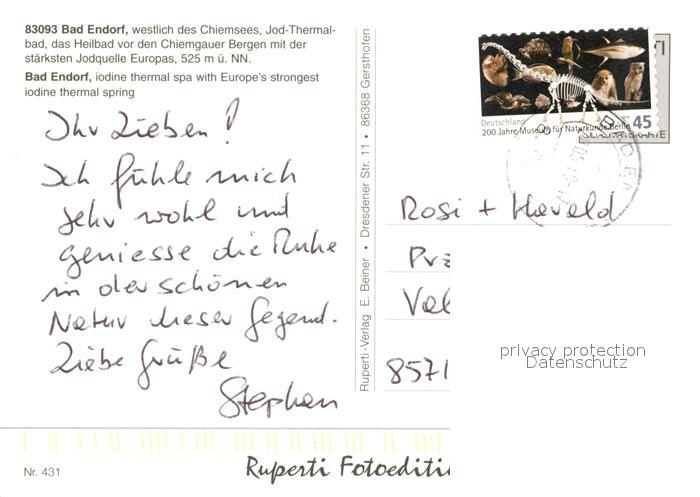 83093 Bad Endorf, westlich des Chiemsees, Jod-Thermal-
bad, das Heilbad vor den Chiemgauer Bergen mit der
stärksten Jodquelle Europas, 525 m ü. NN.
Bad Endorf, iodine thermal spa with Europe's strongest
iodine thermal spring
Ihr Lieben!
Ich fühle mich
sehr wohl und
geniesse die Ruhe
in der schönen
Natur dieser Gegend.
Liebe Grüße
Stephan
Nr. 431
Ruperti Fotoeditio
Ruperti-Verlag E. Beiner • Dresdener Str. 11 • 86368 Gersthofen
Deutschland 45
200 Jahre Museum für Naturkunde Berlin
Rosi + Harald
8571
privacy protection
Datenschutz